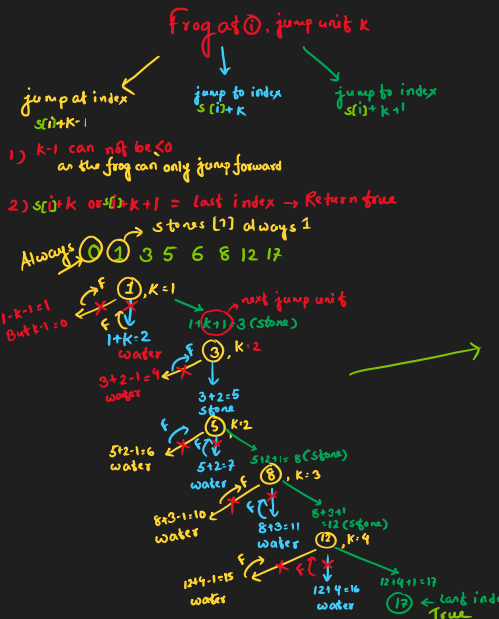 Frog at i, jump unit K
jump at index
s[i]+K-1
jump to index
s[i]+K
jump to index
s[i]+K+1
1) K-1 can not be <0
as the frog can only jump forward
2) s[i]+K or s[i]+K+1 = last index → Return true
stones [1] always 1
Always 0 1 3 5 6 8 12 17
1, K=1
1-K-1=1
But K-1=0
F
F
1+K=2
water
next jump unit
1+K+1=3 (stone)
3, K=2
F
3+2-1=4
water
3+2=5
stone
5, K=2
F
5+2-1=6
water
F
5+2=7
water
5+2+1=8 (stone)
8, K=3
F
8+3-1=10
water
F
8+3=11
water
8+3+1
=12 (stone)
12, K=4
F
12+4-1=15
water
F
12+4=16
water
12+4+1=17
17 ← Last inde
True